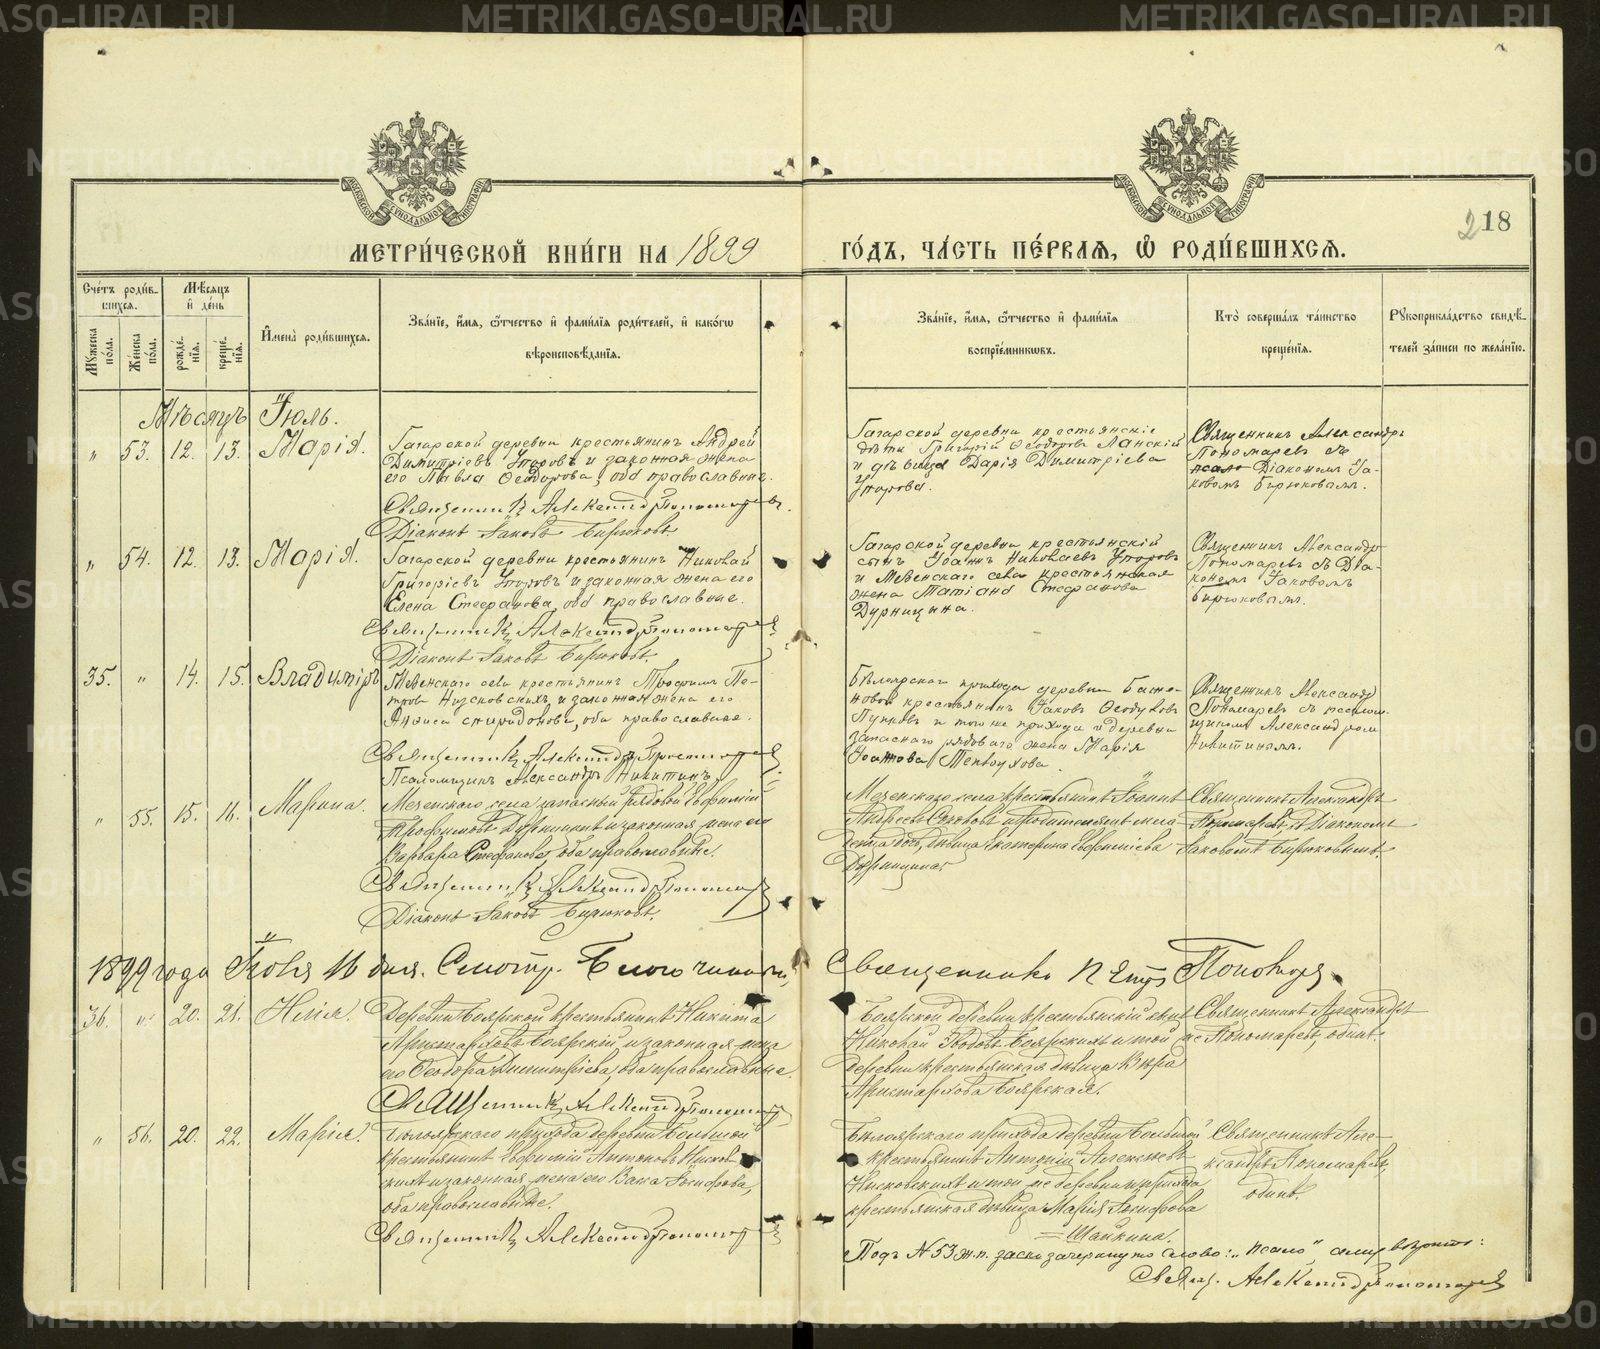 METRIKI.GASO-URAL.RU
МЕТРИ́ЧЕСКОЙ КНИ́ГИ НА 1899
ГО́ДЪ, ЧА́СТЬ ПЕ́РВАЯ, Ѡ РОДИ́ВШИХСЯ.
218
Сче́тъ роди́вшихся.
Му́жеска по́ла.
Же́нска по́ла.
Мѣ́сяцъ и де́нь
рожде́нїя.
креще́нїя.
И҆мена̀ роди́вшихся.
Зва́нїе, и҆́мя, ѻ҆́тчество и҆ фами́лїя роди́телей, и҆ како́гѡ вѣроисповѣ́данїя.
Зва́нїе, и҆́мя, ѻ҆́тчество и҆ фами́лїя воспрїе́мникѡвъ.
Кто̀ соверша́лъ та́инство креще́нїя.
Рꙋкоприкла́дство свидѣ́телей за́писи по жела́нїю.
Мѣсяцъ Іюль.
" 53. 12. 13. Марія.
Гагарской деревни крестьянинъ Андрей
Димитріевъ Упоровъ и законная жена
его Павла Ѳеодорова, оба православные.
Священникъ Александръ Пономаревъ.
Діаконъ Іаковъ Бирюковъ.
Гагарской деревни крестьянскіе
дѣти Григорій Ѳеодоровъ Ланскій
и дѣвица Дарія Димитріева
Упорова.
Священникъ Александръ
Пономаревъ съ
псало Діакономъ Іа-
ковомъ Бирюковымъ.
" 54. 12. 13. Марія.
Гагарской деревни крестьянинъ Николай
Григоріевъ Упоровъ и законная жена его
Елена Стефанова, оба православные.
Священникъ Александръ Пономаревъ
Діаконъ Іаковъ Бирюковъ.
Гагарской деревни крестьянскій
сынъ Іоаннъ Николаевъ Упоровъ
и Мезенскаго села крестьянская
жена Стефанова
Дурницина.
Священникъ Александръ
Пономаревъ съ Діа-
кономъ Іаковомъ
Бирюковымъ.
35. " 14. 15. Владиміръ
Мезенскаго села крестьянинъ Трофимъ Пе-
тровъ Нисковскихъ и законная жена его
Анфиса Спиридонова, оба православные.
Священникъ Александръ Пономаревъ
Псаломщикъ Александръ Никитинъ.
Бѣлоярскаго прихода деревни Баже-
новой крестьянинъ Іаковъ
и того же прихода и деревни
запаснаго рядоваго жена Марія
Іоаннова
Священникъ Александръ
Пономаревъ съ псалом-
щикомъ Александромъ
Никитинымъ.
" 55. 15. 16. Марина.
Мезенскаго села запасный рядовой Евфимій
Трофимовъ Дурницинъ и законная жена его
Варвара Стефанова, оба православные.
Священникъ Александръ Пономаревъ
Діаконъ Іаковъ Бирюковъ.
Мезенскаго села крестьянинъ Іоаннъ
Андреевъ и родителямъ мла-
денца дочь, дѣвица Екатерина Евфиміева
Дурницина.
Священникъ Александръ
Пономаревъ съ Діакономъ
Іаковомъ Бирюковымъ.
1899 года Іюля 16 дня. Смотр. Благочинный,
Священникъ Петръ Пономаревъ.
36. " 20. 21. Илія.
Деревни Боярской крестьянинъ Никита
Аристарховъ Боярскій и законная жена
его Ѳеодора Димитріева, оба православные.
Священникъ Александръ Пономаревъ
Боярской деревни крестьянскій сынъ
Николай Боярскихъ и той же
деревни крестьянская дѣвица Вѣра
Аристархова Боярская.
Священникъ Александръ
Пономаревъ, одинъ.
" 56. 20. 22. Марія.
Бѣлоярскаго прихода деревни Большой
крестьянинъ Евфимій Антоновъ Нисков-
скихъ и законная жена его Васса Іосифова,
оба православные.
Священникъ Александръ Пономаревъ
Бѣлоярскаго прихода деревни Большой
крестьянинъ Антоній Алексѣевъ
Нисковскихъ и той же деревни и прихода
крестьянская дѣвица Марія Іосифова
Шайкина.
Священникъ Але-
ксандръ Пономаревъ,
одинъ.
Подъ № 53 ж.п. зачеркнуто слово: „псало"
Свящ. Александръ Пономаревъ